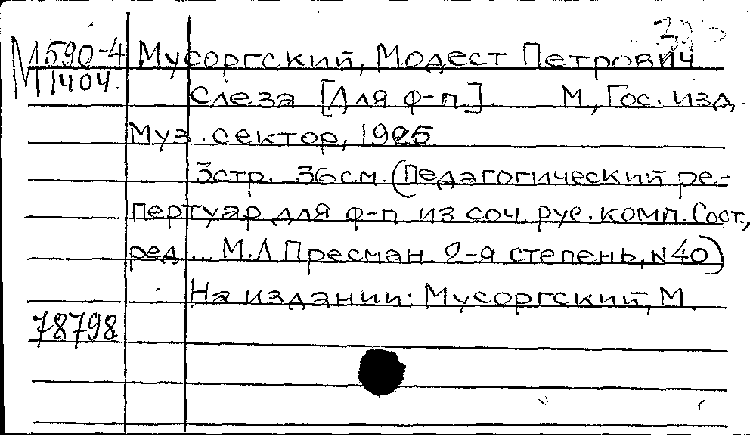 М590-4 Мусоргский, Модест Петрович
М1404. Слеза [Для ф-п.] М., Гос. изд.
Муз. сектор, 1925
3стр. 36см. (Педагогический ре-
пертуар для ф-п из соч. рус. комп. Сост.,
ред... М.Л Пресман 2-я степень, N40)
На издании: Мусоргский, М.
78798